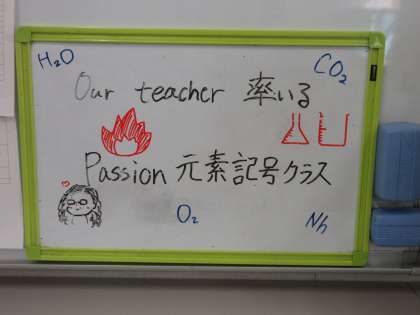 H₂O
CO₂
Our teacher 率いる
Passion 元素記号クラス
O₂
Nh